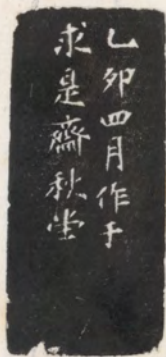 乙卯四月作于
求是齋秋堂